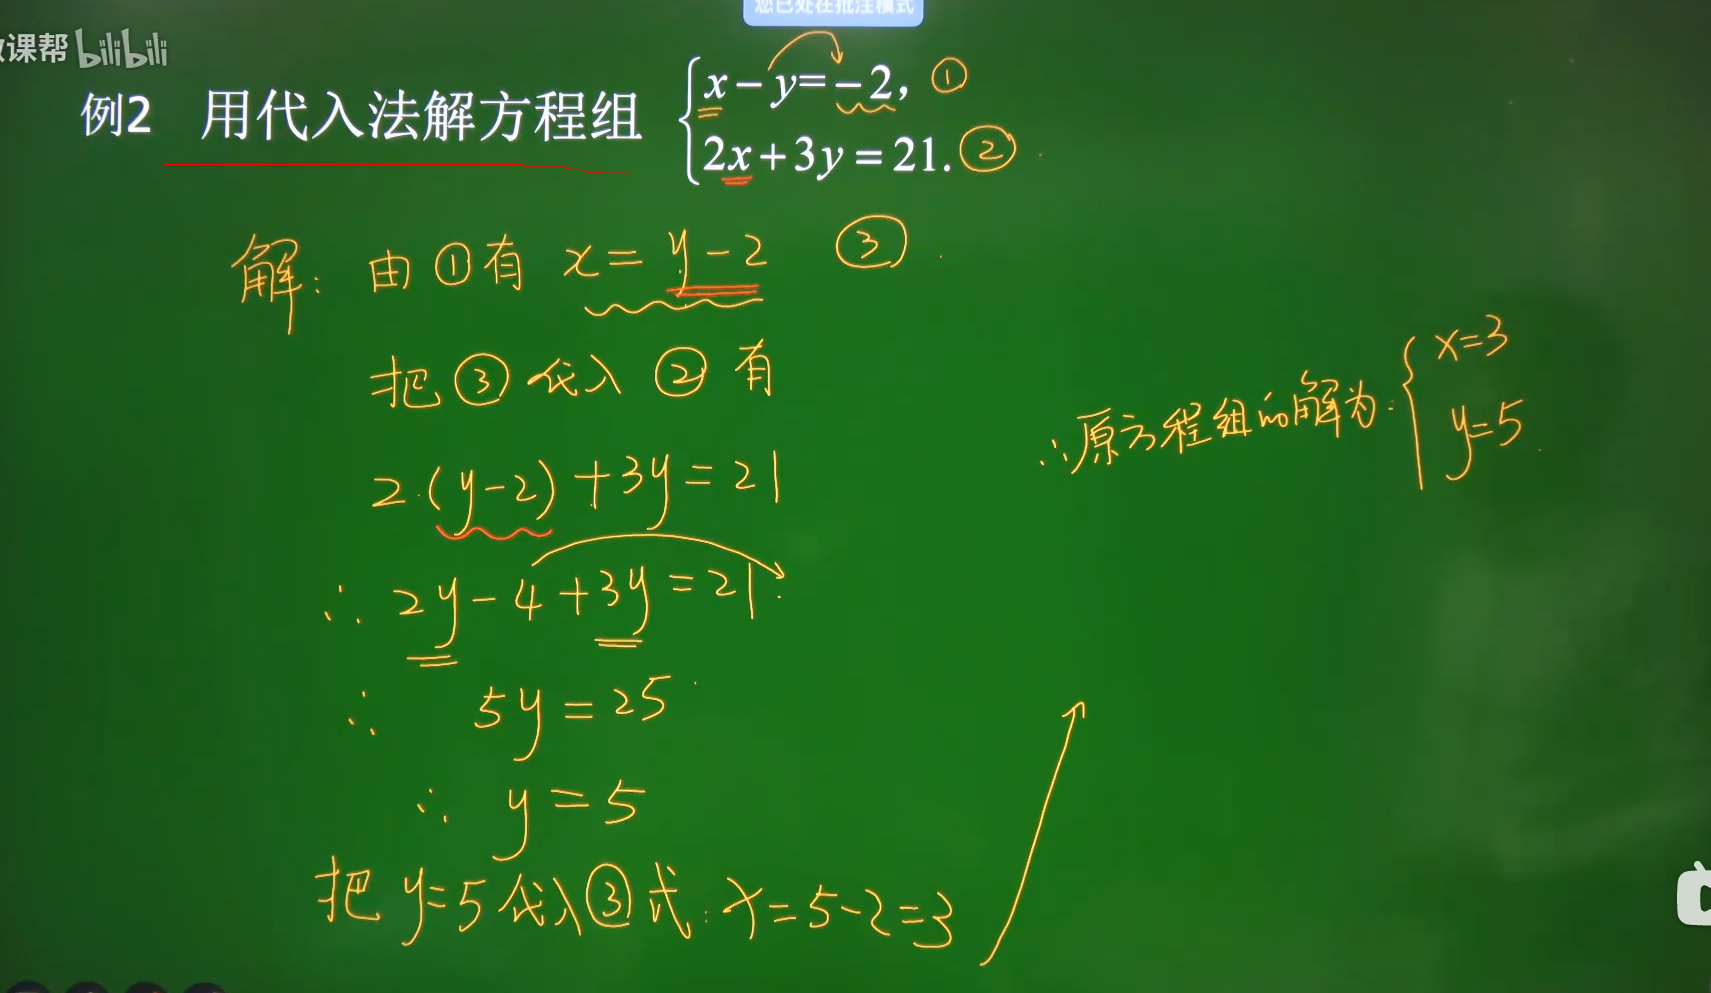 您已处在批注模式
课帮 bilibili
例2 用代入法解方程组 { x－y=－2, ①
2x+3y=21. ②
解: 由①有 x=y-2 ③
把③代入②有
2·(y-2)+3y=21
∴ 2y-4+3y=21
∴ 5y=25
∴ y=5
把y=5代入③式: x=5-2=3
∴原方程组的解为: { x=3
y=5